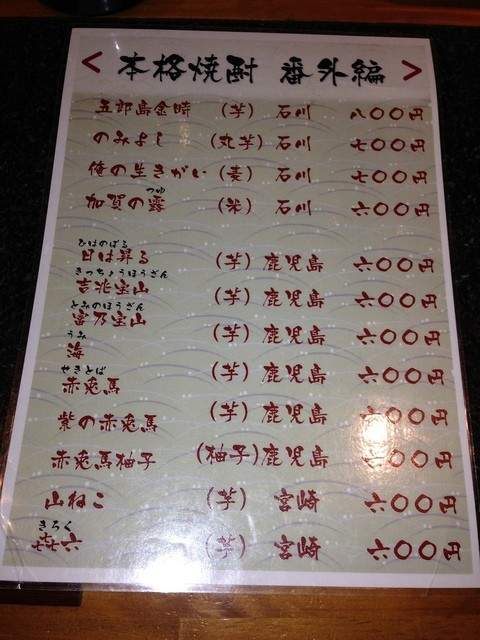 <本格焼酎 番外編>
五郎島金時 (芋) 石川 八〇〇円
のみよし (丸芋) 石川 七〇〇円
俺の生きがい (麦) 石川 七〇〇円
つゆ
加賀の露 (米) 石川 六〇〇円
ひはのぼる
日は昇る (芋) 鹿児島 六〇〇円
きっちょうほうざん
吉兆宝山 (芋) 鹿児島 六〇〇円
とみのほうざん
富乃宝山 (芋) 鹿児島 六〇〇円
うみ
海 (芋) 鹿児島 六〇〇円
せきとば
赤兎馬 (芋) 鹿児島 六〇〇円
紫の赤兎馬 (芋) 鹿児島 六〇〇円
赤兎馬柚子 (柚子) 鹿児島 六〇〇円
山ねこ (芋) 宮崎 六〇〇円
きろく
㐂六 (芋) 宮崎 六〇〇円